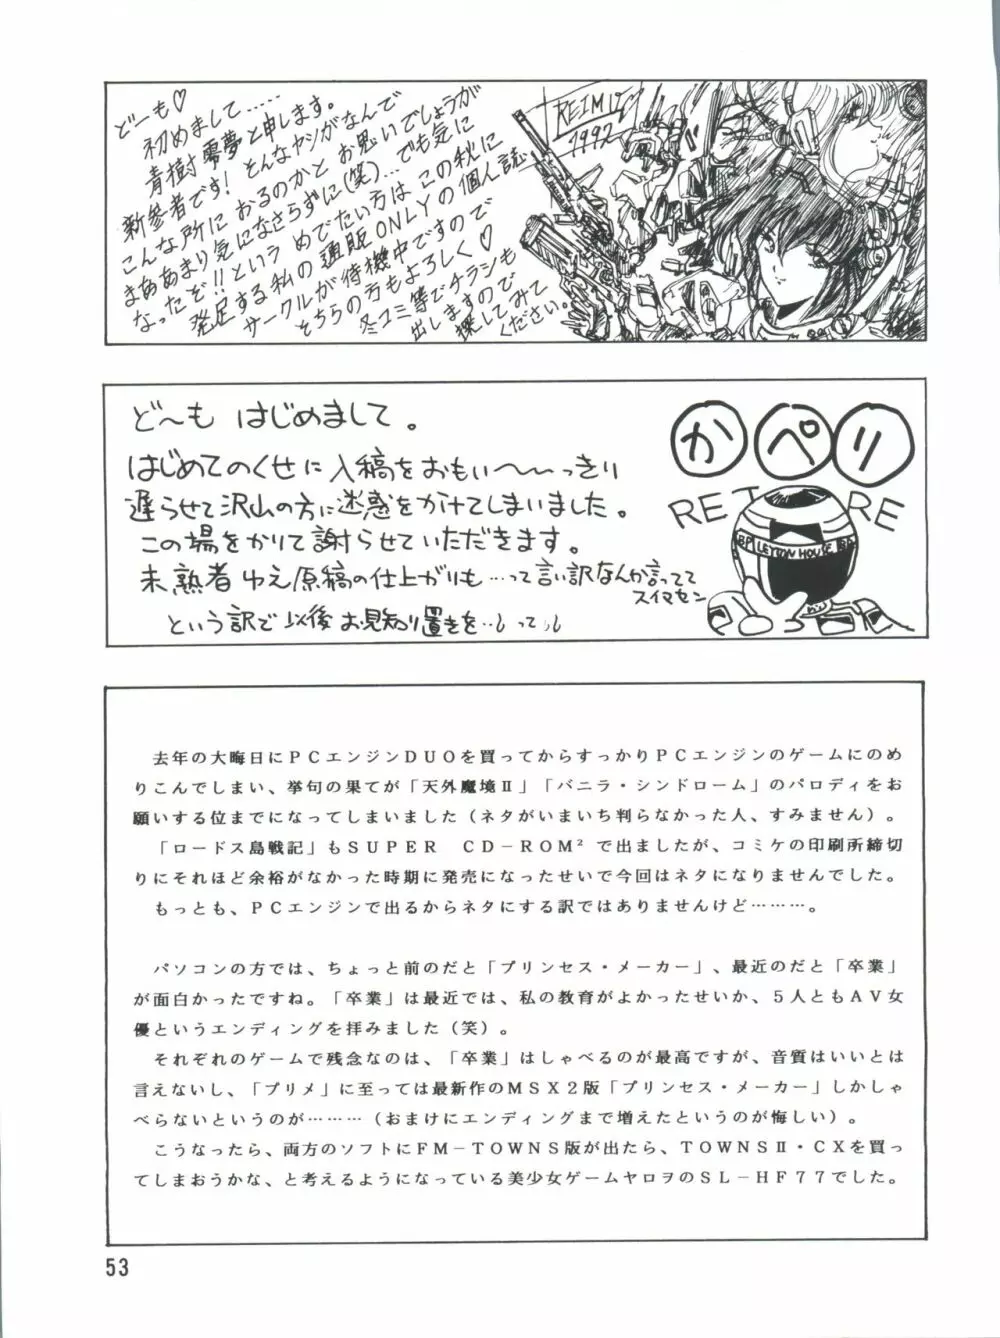 どーも♡
初めまして……
青樹零夢と申します。
新参者です! とんなヤツがなんで
こんな所に おるのかと お思いでしょうが
まああまり気になさらずに(笑)… でも気に
なったぞ!! という めでたい方は この秋に
発足する私の 通販ONLYの個人誌
サークルが待機中ですので
そちらの方もよろしく♡
冬コミ等でチラシも
出しますので
探してみて
ください。
REIM
1992
ど〜も はじめまして。
はじめてのくせに入稿をおもい〜〜っきり
遅らせて沢山の方に迷惑をかけてしまいました。
この場をかりて謝らせていただきます。
未熟者ゆえ原稿の仕上がりも…って言い訳なんか言ってて
スイマセン
という訳で以後お見知り置きを…
かぺり
RETURE
BP LEYTON HOUSE BP
去年の大晦日にPCエンジンDUOを買ってからすっかりPCエンジンのゲームにのめ
りこんでしまい、挙句の果てが「天外魔境Ⅱ」「バニラ・シンドローム」のパロディをお
願いする位までになってしまいました(ネタがいまいち判らなかった人、すみません)。
「ロードス島戦記」もSUPER CD-ROM²で出ましたが、コミケの印刷所締切
りにそれほど余裕がなかった時期に発売になったせいで今回はネタになりませんでした。
もっとも、PCエンジンで出るからネタにする訳ではありませんけど………。
パソコンの方では、ちょっと前のだと「プリンセス・メーカー」、最近のだと「卒業」
が面白かったですね。「卒業」は最近では、私の教育がよかったせいか、5人ともAV女
優というエンディングを拝みました(笑)。
それぞれのゲームで残念なのは、「卒業」はしゃべるのが最高ですが、音質はいいとは
言えないし、「プリメ」に至っては最新作のMSX2版「プリンセス・メーカー」しかしゃ
べらないというのが………(おまけにエンディングまで増えたというのが悔しい)。
こうなったら、両方のソフトにFM-TOWNS版が出たら、TOWNSⅡ・CXを買っ
てしまおうかな、と考えるようになっている美少女ゲームヤロヲのSL-HF77でした。
53